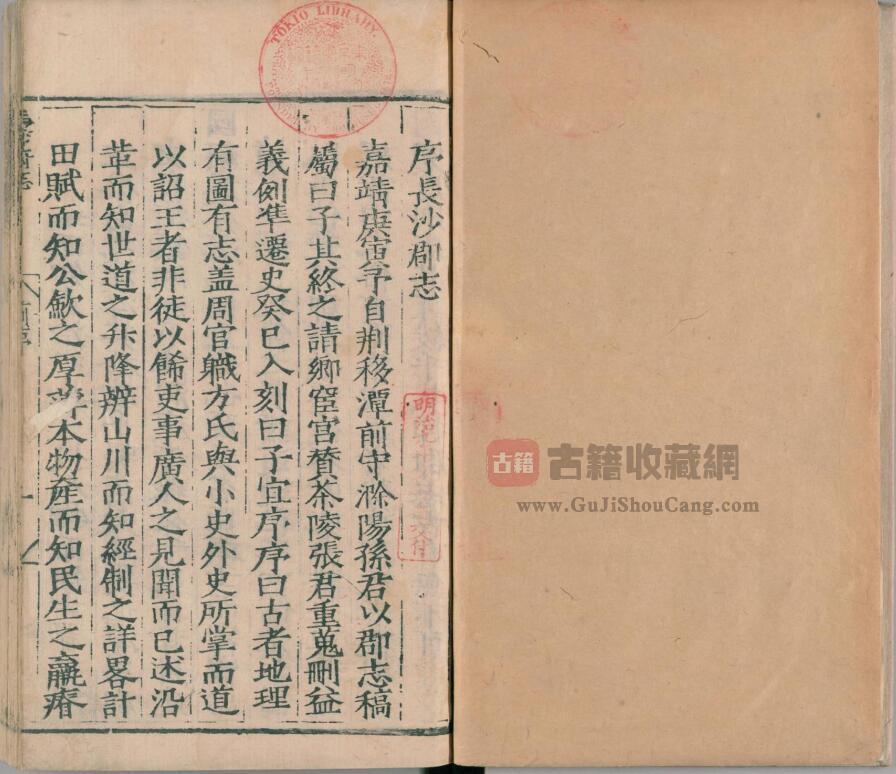 序長沙郡志
嘉靖庚寅予自荆移潭前守滁陽孫君以郡志稿
屬曰子其終之請鄉宦宫贊茶陵張君重蒐刪益
義例凖遷史癸巳入刻曰子宜序序曰古者地理
有圖有志盖周官職方氏與小史外史所掌而道
以詔王者非徒以餙吏事廣人之見聞而已述沿
革而知世道之升降辨山川而知經制之詳畧計
田賦而知公歛之厚薄本物産而知民生之羸瘠
TOKIO LIBRARY
古籍
古籍收藏網
www.GuJiShouCang.com